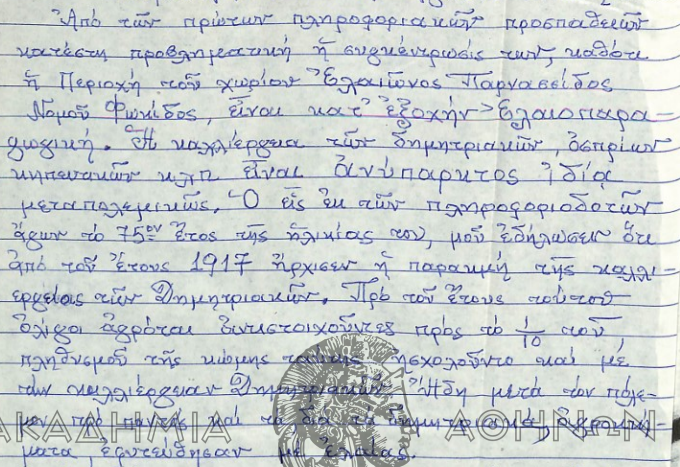 Ἀπό τῶν πρώτων πληροφοριακῶν προσπαθειῶν
κατέστη προβληματική ἡ συγκέντρωσίς των, καθότι
ἡ Περιοχή τοῦ χωρίου Ἐλαιῶνος Παρνασσίδος
Νομοῦ Φωκίδος, εἶναι κατ' ἐξοχήν Ἐλαιοπαρα-
γωγική. Ἡ καλλιέργεια τῶν δημητριακῶν, ὀσπρίων
κηπευτικῶν κλπ εἶναι ἀνύπαρκτος ἰδίᾳ
μεταπολεμικῶς. Ὁ εἷς ἐκ τῶν πληροφοριοδοτῶν
ἄγων τό 75ον ἔτος τῆς ἡλικίας του, μοῦ ἐδήλωσεν ὅτι
ἀπό τοῦ ἔτους 1917 ἤρχισεν ἡ παρακμή τῆς καλλι-
εργείας τῶν Δημητριακῶν. Πρό τοῦ ἔτους τούτου
ὀλίγοι ἀγρόται ἀντιστοιχοῦντες πρός τό 1/10 τοῦ
πληθυσμοῦ τῆς κώμης ταύτης ἠσχολοῦντο καί μέ
τήν καλλιέργειαν Δημητριακῶν. Ἤδη μετά τόν πόλε-
μον πρό παντός καί τά διά τά δημητριακά, ἀγροτε-
ματα ἐφυτεύθησαν μέ ἐλαίας.
ΑΚΑΔΗΜΙΑ ΑΘΗΝΩΝ